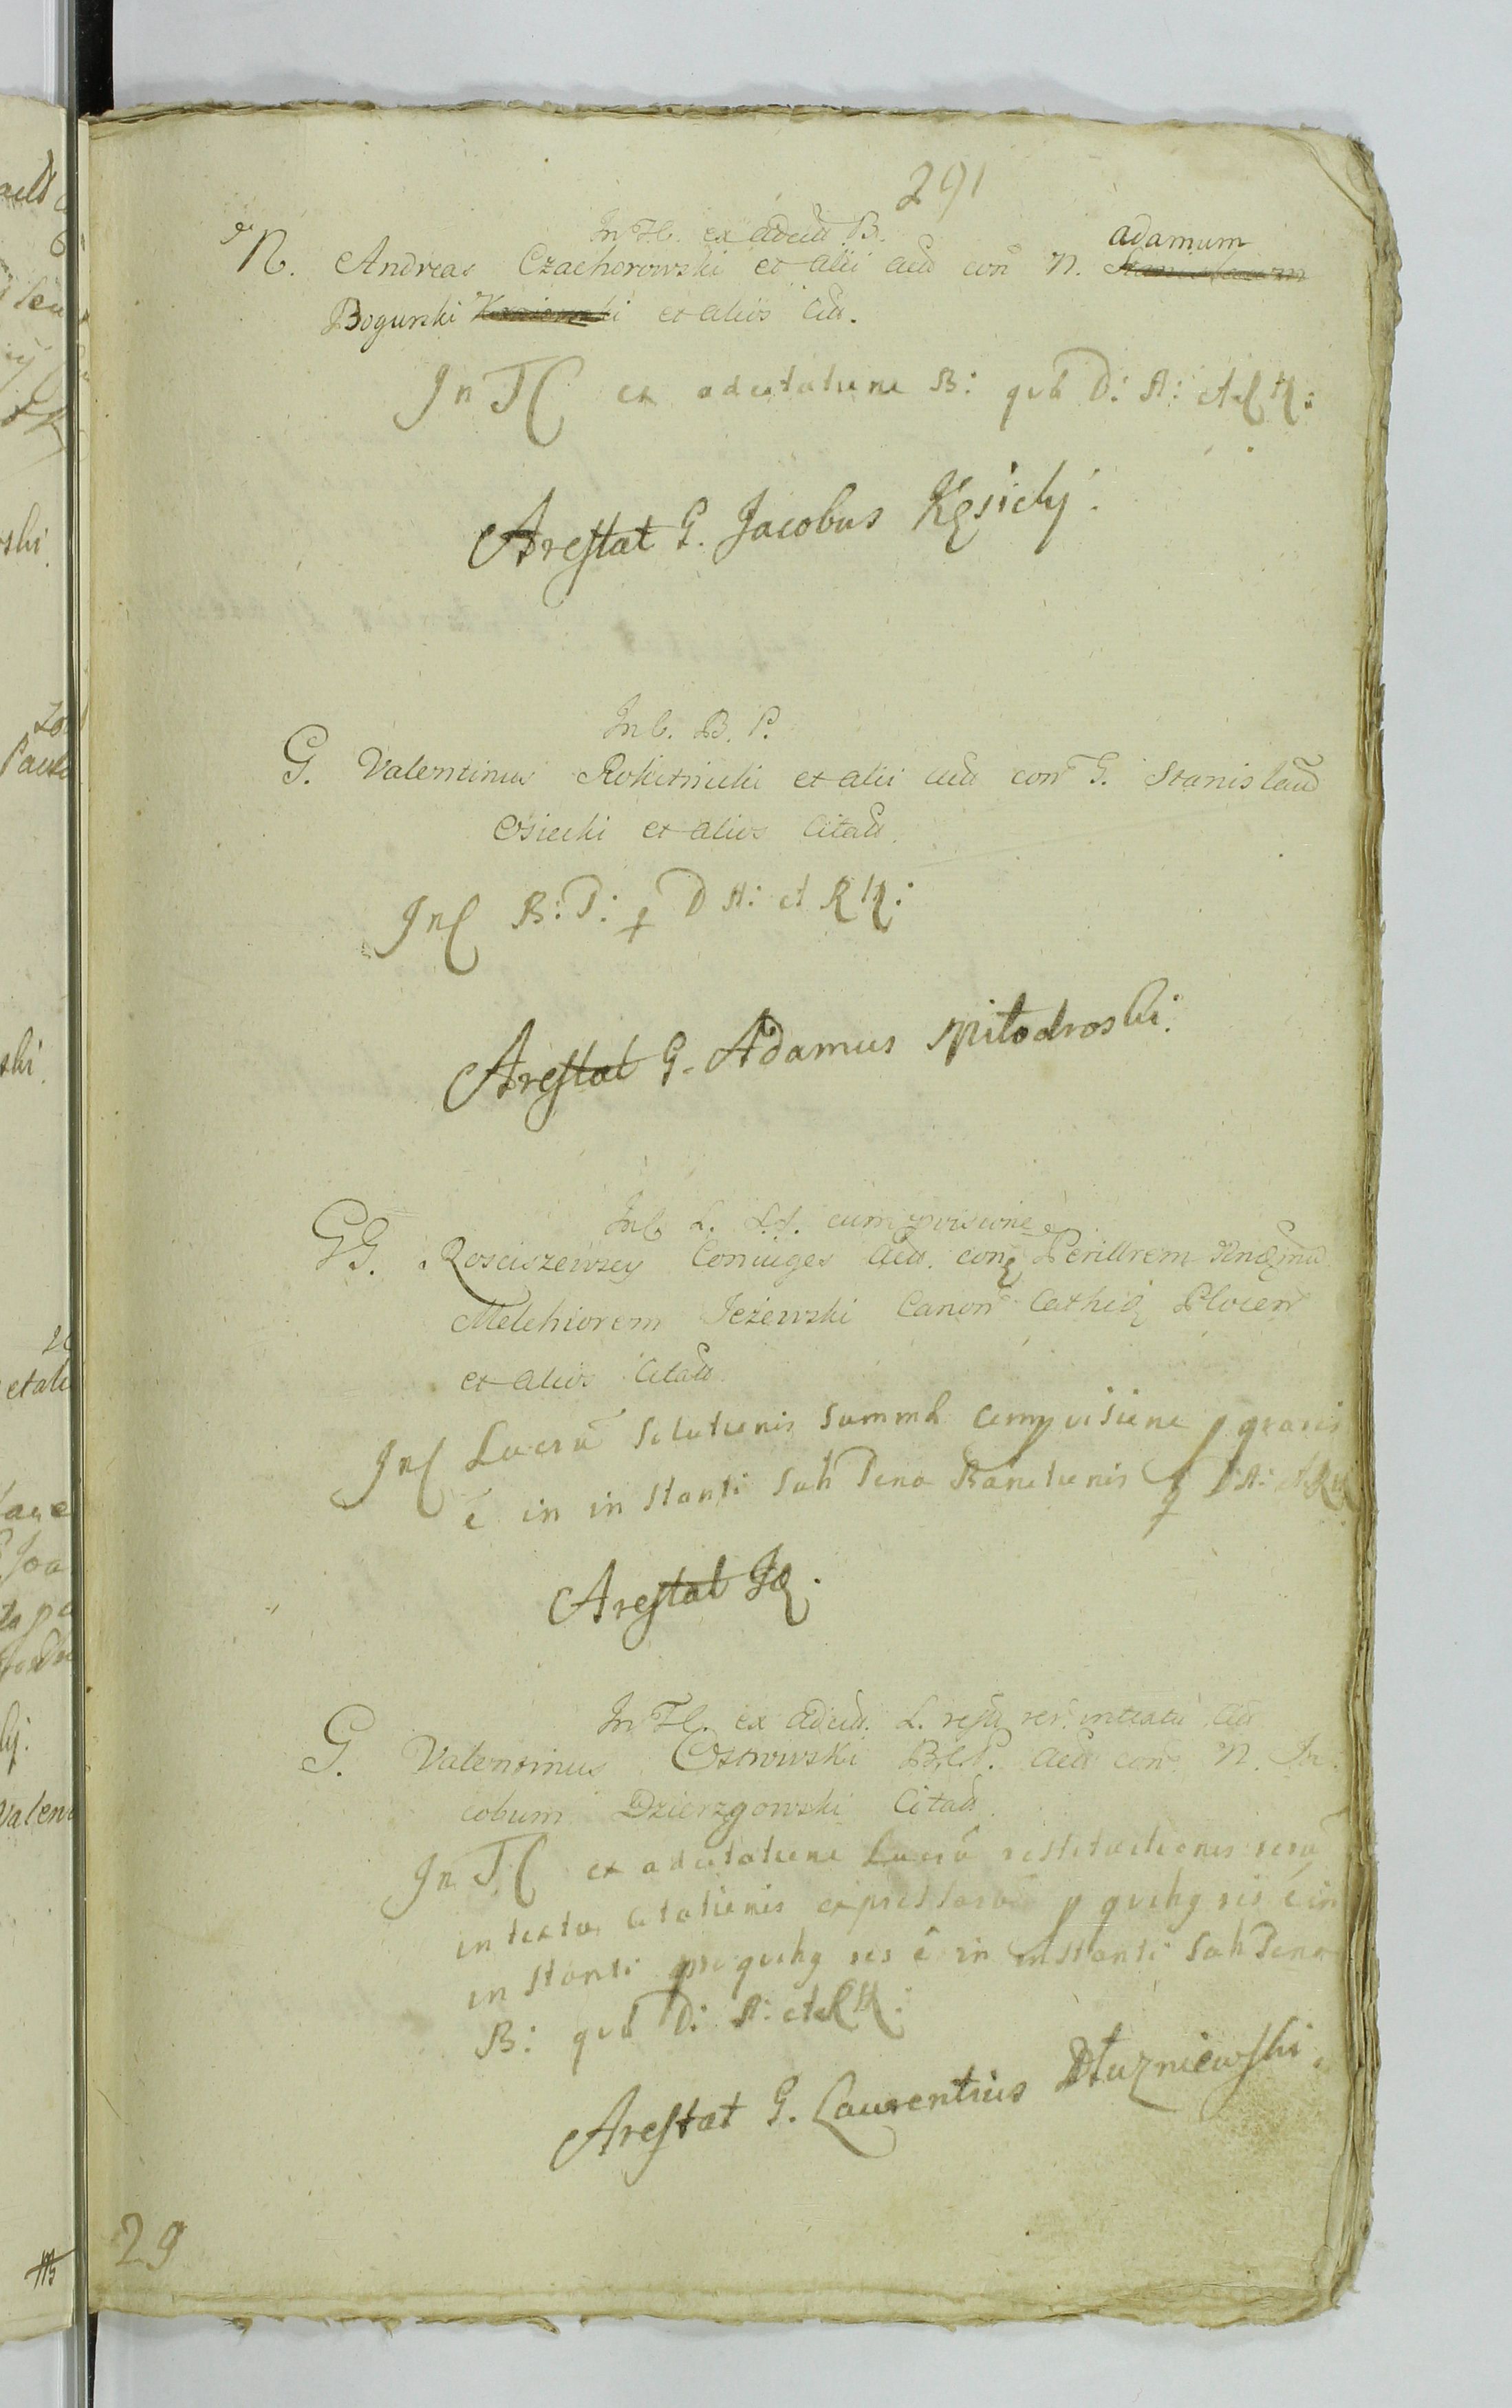 291
In TC. ex adcita B.
N. Andreas Czachorowski et alii act con N. Adamum
Bogurski et alios Cit.
In TC ex adcitatione B: qub D: A: et R
Arestat G. Jacobus Kęsicki.
In C. B. P.
G. Valentinus Rokitnicki et alii act con G. Stanislaum
Osiecki et alios Citat.
In C B: P: D A: et R
Arestat G. Adamus Miłodroski.
In C L. cum provisione
GG. Rosciszewscy Coniuges Act. con Perillrem Rndum
Melchiorem Jeżewski Canon Cathlq Plocen
et alios Citat.
In C Lucru Solutionis Summa cum provisione p quavis
e in instanti sub Pena Banitionis D: A: et R
Arestat Iq.
In TC. ex adcita. L. rest rer. intextu
G. Valentinus Ostrowski B. C. P. Act con N. Ja-
cobum Dzierzgowski Citat.
In TC ex adcitatione Lucru restitutionis reru
in textu citationis expressaru p quibq res e in
instanti pro quibq res e in instanti sub Pena
B: qub D: A: et R
Arestat G. Laurentius Dłuzniewski.
29